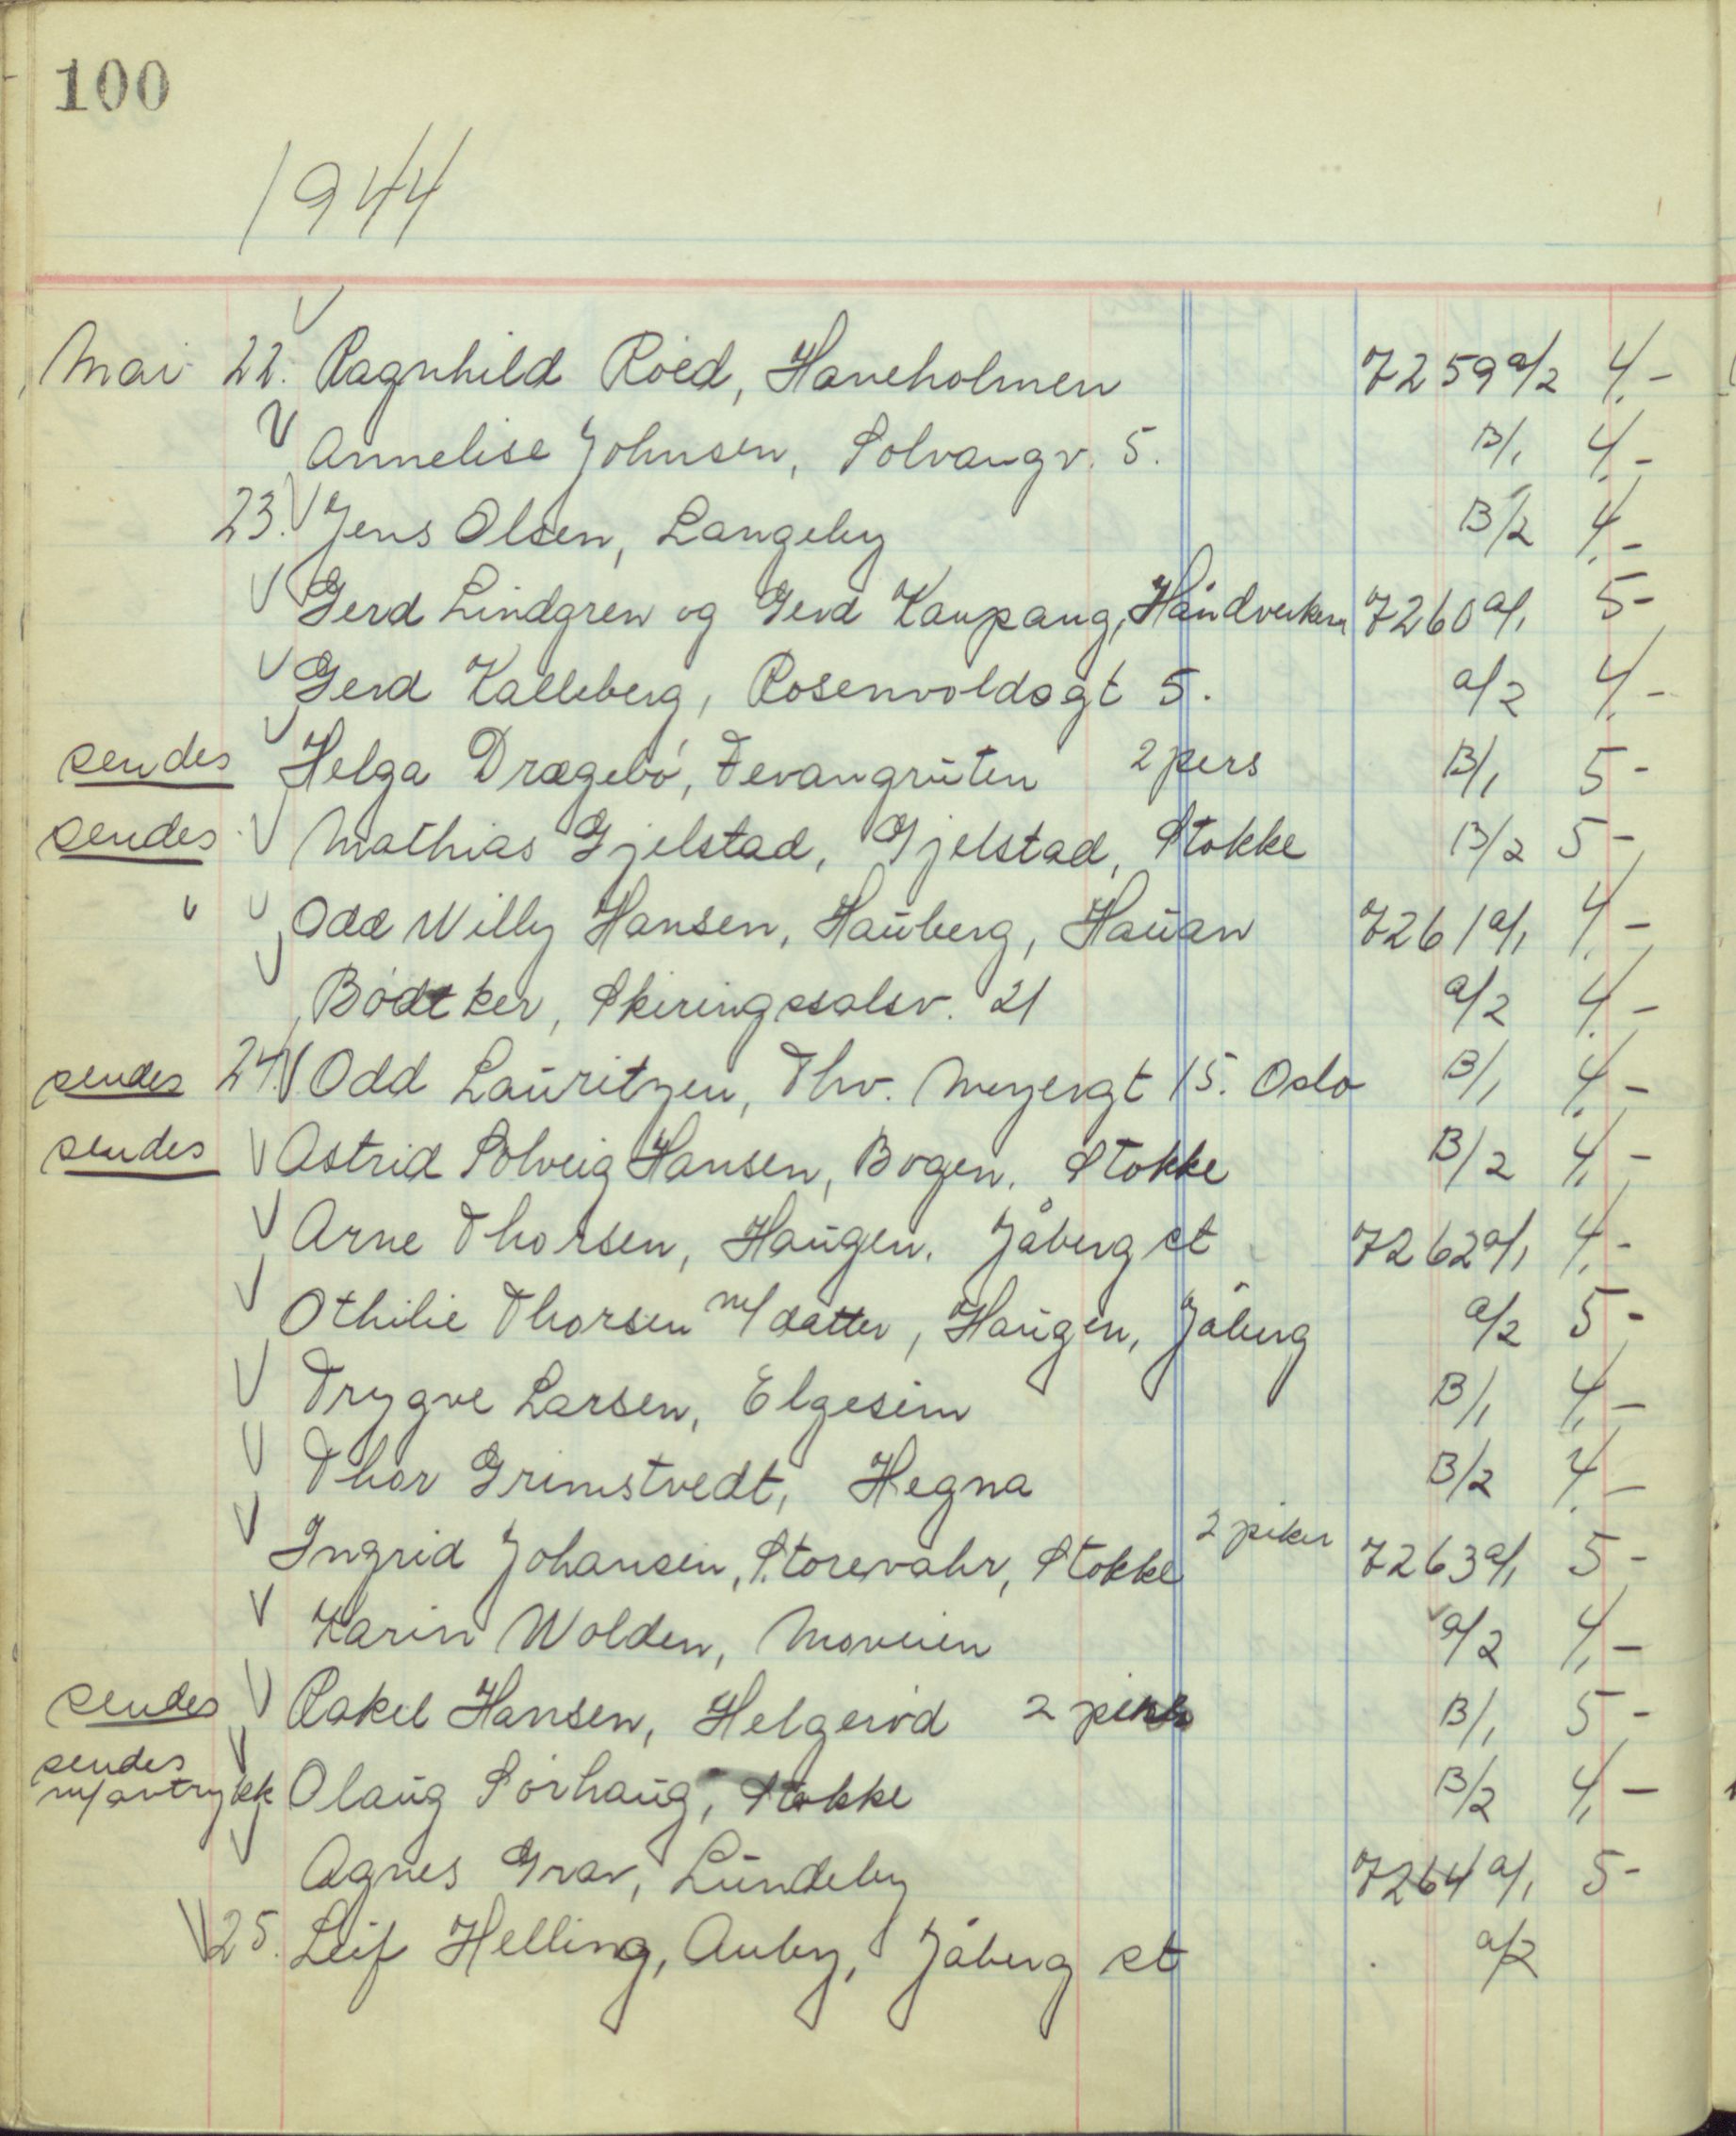 100
1944
Mai 22. Ragnhild Röed, Haneholmen 7259 a/2 4,-
Annelise Johnsen, Solvangv. 5. B/1 4,-
23. Jens Olsen, Langeby B/2 4,-
Gerd Lindgren og Gerd Kaupang, Håndverkern 7260 a/1 5-
Gerd Kalleberg, Rosenvoldsgt 5. a/2 4,-
sendes Helga Dragebö, Fevangruten 2 pers B/1 5-
sendes Mathias Gjelstad, Gjelstad, Stokke B/2 5-
" Odd Willy Hansen, Hauberg, Hauan 7261 a/1 4,-
Bödtker, Skiringssalsv. 21 a/2 4,-
sendes 24. Odd Lauritzen, Thv. Meyersgt 15. Oslo B/1 4,-
sendes Astrid Solveig Hansen, Bogen, Stokke B/2 4,-
Arne Thorsen, Haugen, Jåberg st 7262 a/1 4,-
Othilie Thorsen m/datter, Haugen, Jåberg a/2 5-
Trygve Larsen, Elgesem B/1 4,-
Thor Grimstvedt, Hegna B/2 4,-
Ingrid Johansen, Storevahr, Stokke 2 piker 7263 a/1 5-
Karin Wolden, Moveien a/2 4,-
sendes Rakel Hansen, Helgeröd 2 piker B/1 5-
sendes
m/avtrykk Olaug Sörhaug, Stokke B/2 4,-
Agnes Grav, Lundeby 7264 a/1 5-
25. Leif Helling, Auby, Jåberg st a/2